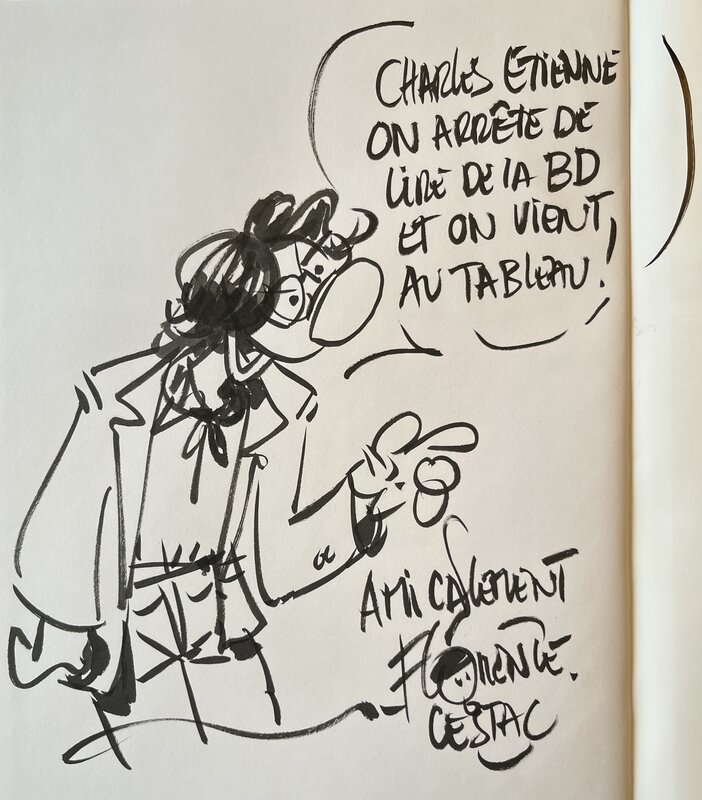 CHARLES ÉTIENNE
ON ARRÊTE DE
LIRE DE LA BD
ET ON VIENT
AU TABLEAU !
AMICALEMENT
FLORENCE.
CESTAC